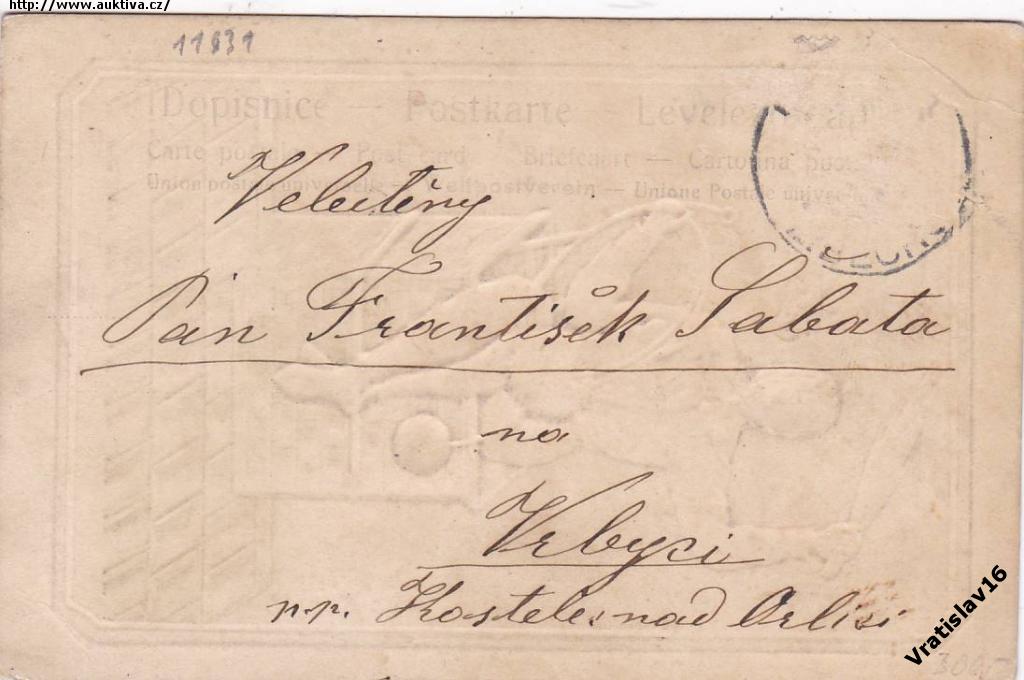 http://www.auktiva.cz/
11831
Dopisnice — Postkarte — Levelezőlap
Carte postale — Post card Briefkaart — Cartolina post
Union postale universelle — Weltpostverein — Unione Postale univers
Velectěný
Pán František Sabata
na
Vrbyci
p. p. Kostelec nad Orlici
Vratislav16